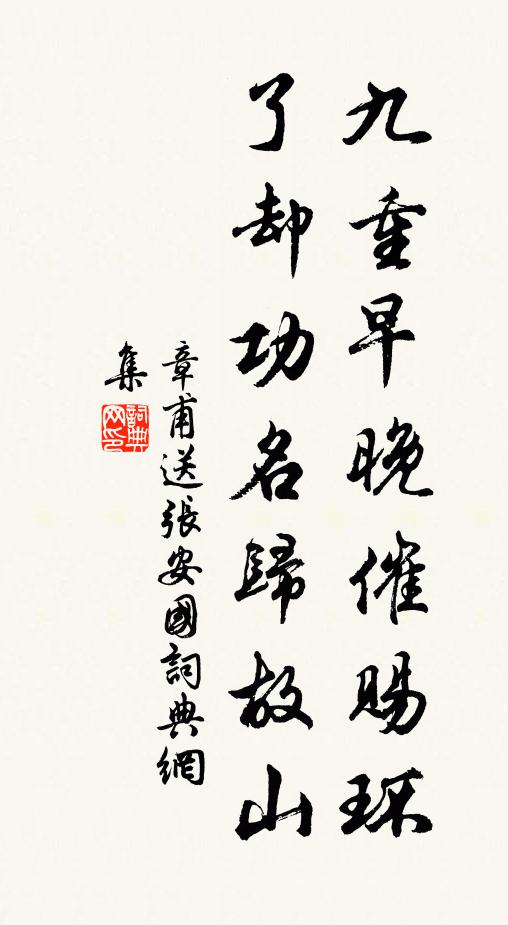 九重早晚催賜环
了却功名歸故山
章甫送張安國詞典網
集
詞典
网印